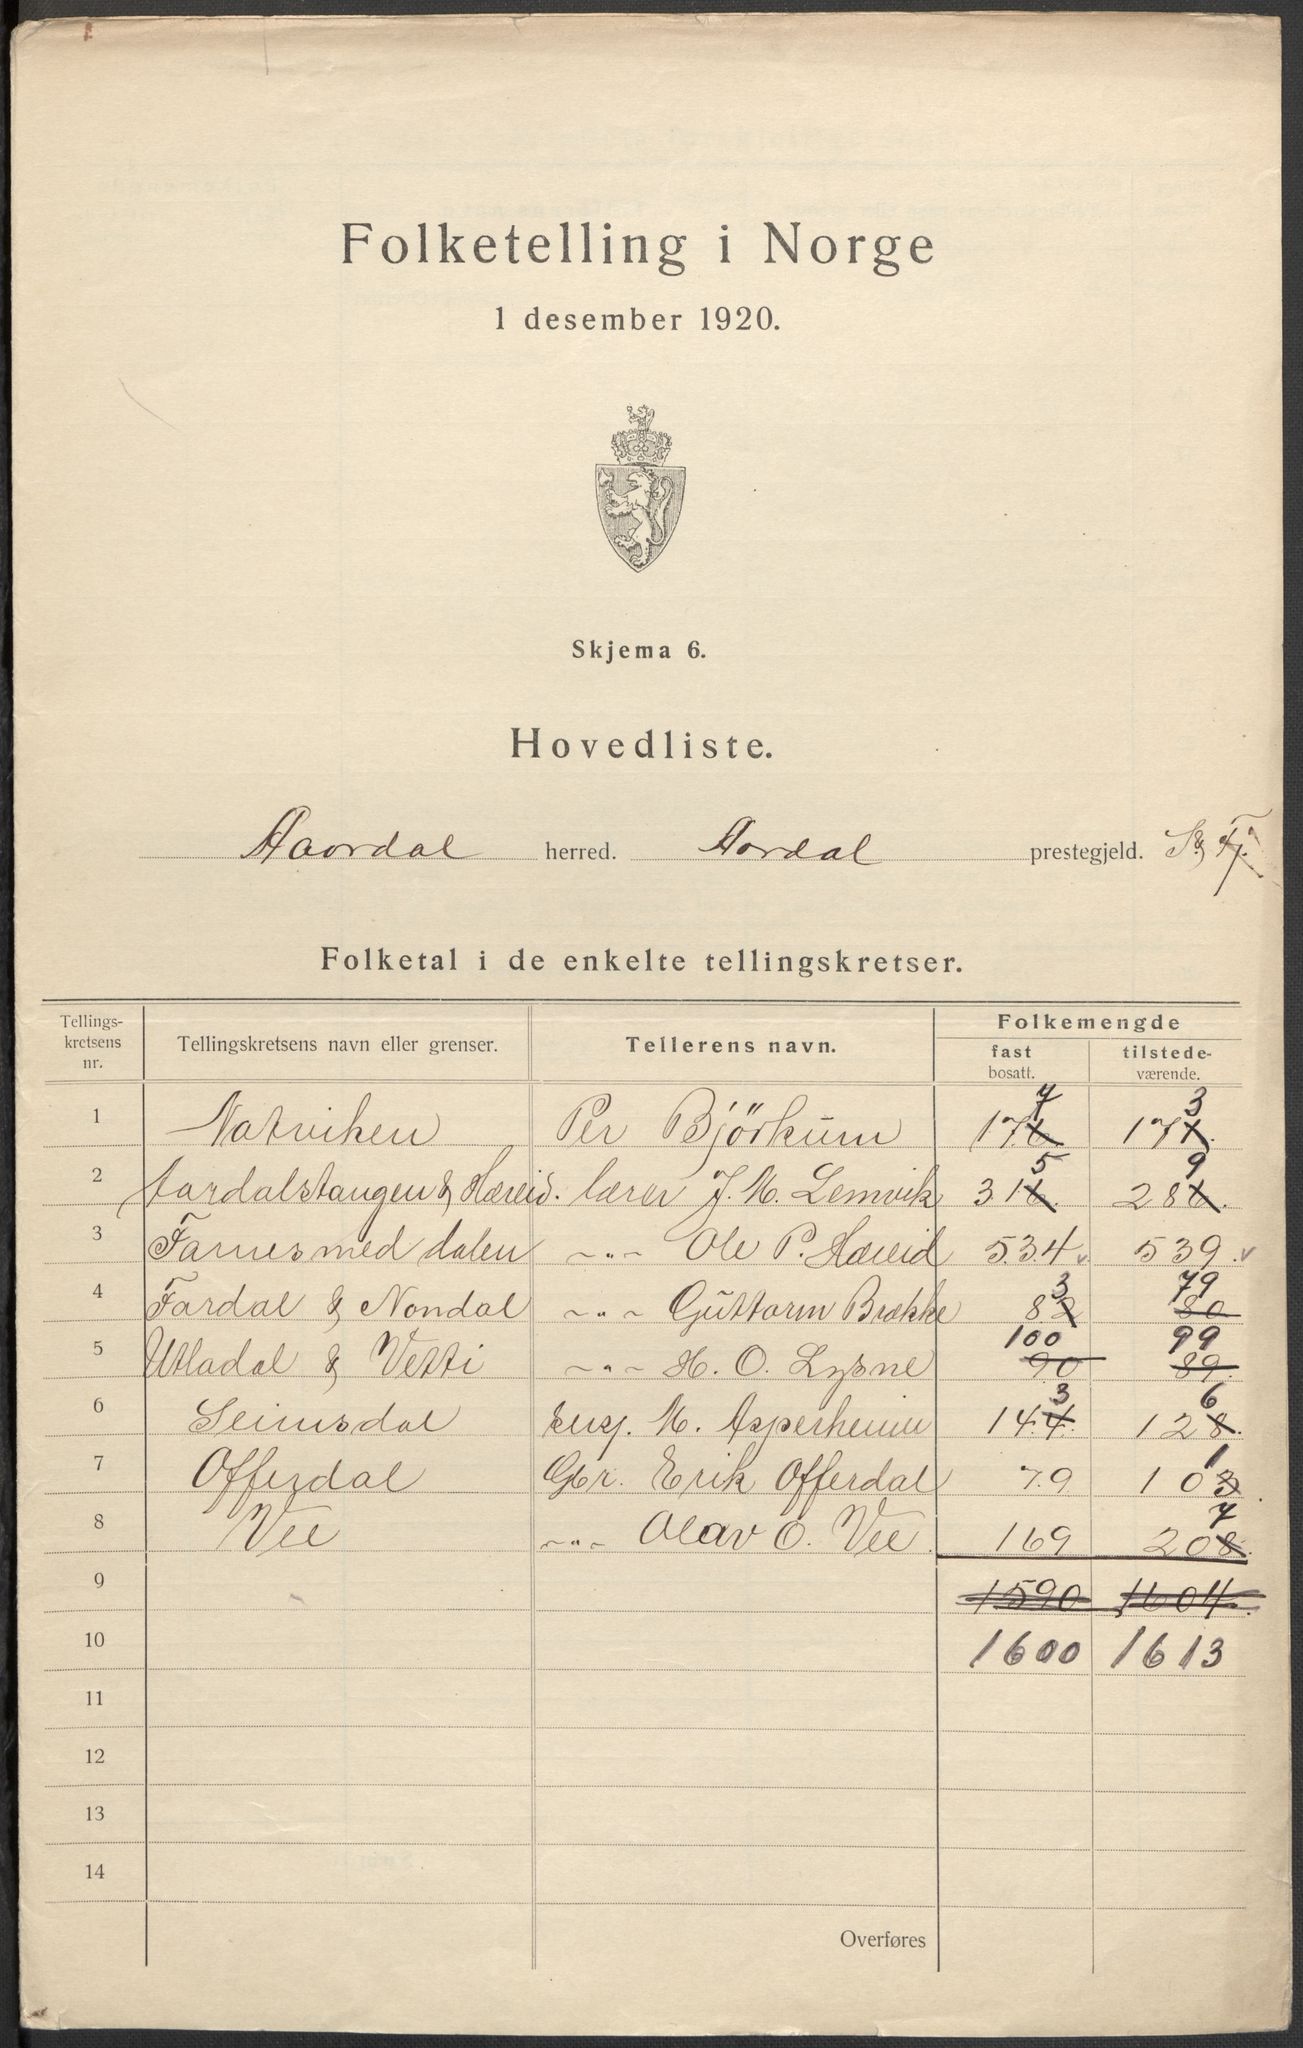 Folketelling i Norge
1 desember 1920.
Skjema 6.
Hovedliste.
Aardal herred. Aardal prestegjeld. S. & Fj.
Folketal i de enkelte tellingskretser.
Tellings-kretsens nr. Tellingskretsens navn eller grenser. Tellerens navn. Folkemengde
fast bosatt. tilstede-værende.
7 3
1 Natviken Per Björkum 176 171.
5 9
2 Aardalstangen & Hæreid. lærer J. M. Lemvik 316. 286.
3 Farnes med dalen -"- Ole P. Hæreid 534 v 539 v
3 79
4 Fardal & Nondal -"- Guttorm Brække 82 80
100 99
5 Utladal & Vetti -"- H. O. Lysne 90 89.
3 6
6 Seimsdal M. Asperheim 144. 128.
1
7 Offerdal Gbr. Erik Offerdal 79 103.
7
8 Vee -"- Olav O. Vee. 169 208.
9 1590 1604.
10 1600 1613
11
12
13
14
Overføres